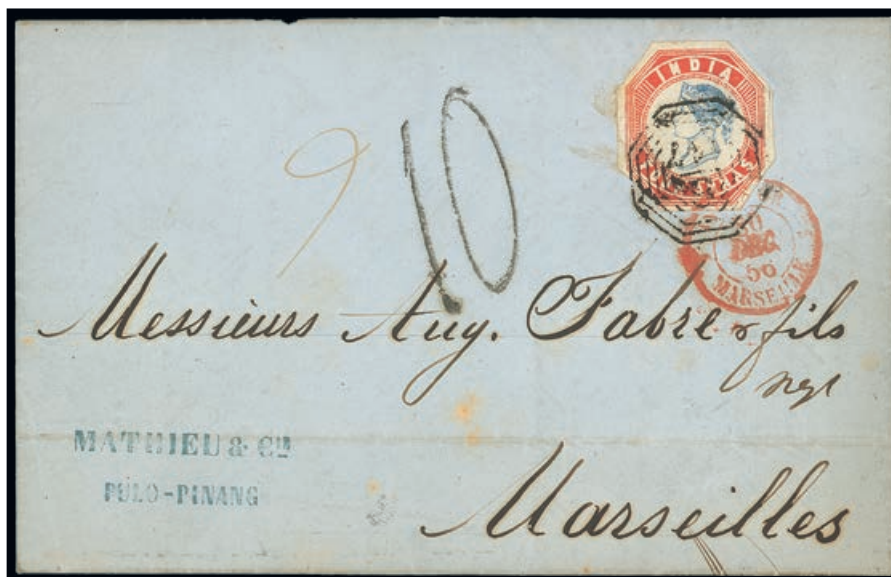 INDIA
FOUR ANNAS
9
10
DEC
56
MARSEILLE
Messieurs Aug. Fabre & fils
negt
MATHIEU & Cie
PULO-PINANG
Marseilles